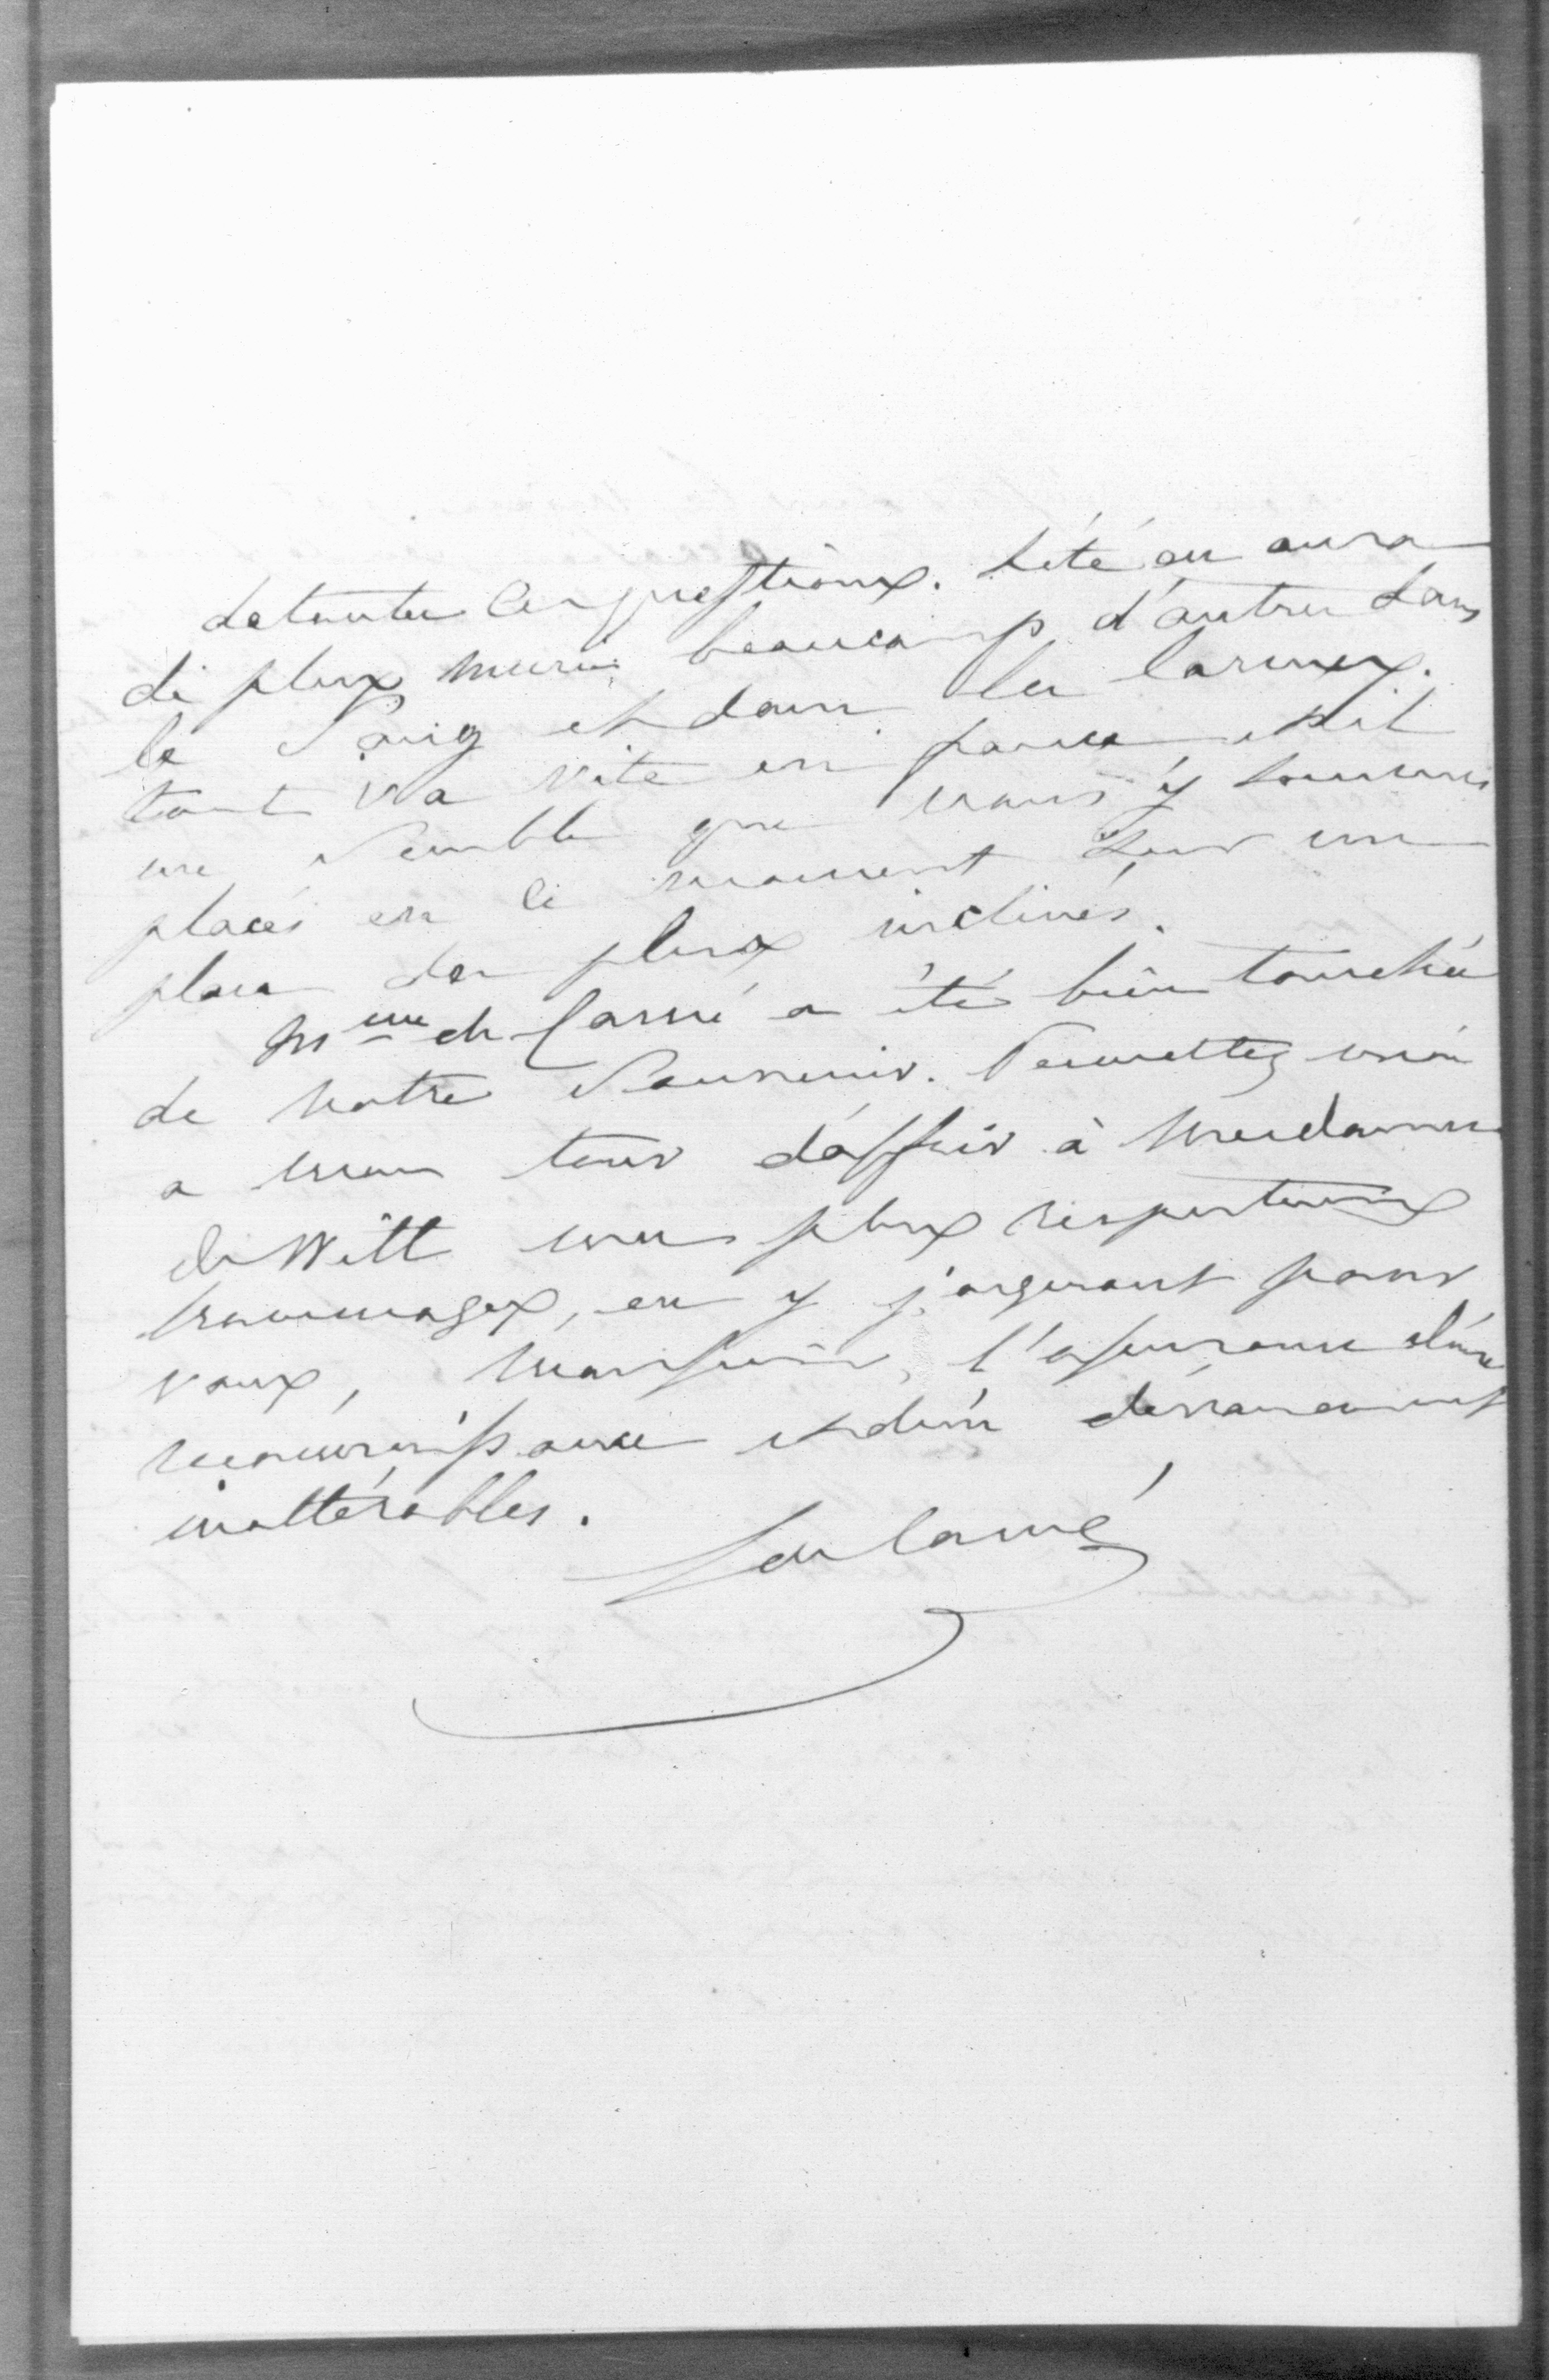 de toutes les questions. L'été en aura
de plus muri beaucoup d'autres dans
le Sang et dans les larmes.
tout va vite en france et il
me Semble que nous y sommes
placés en ce moment Sur un
plan des plus inclinés.
Mme de Carné a été bien touchée
de votre Souvenir. Permettez moi
a mon tour d'offrir à Mesdames
de Witt mes plus respectueux
hommages, en y joignant pour
vous, Monsieur, l'assurance d'une
reconnaissance et d'un dévouement
inaltérables.
L de Carné